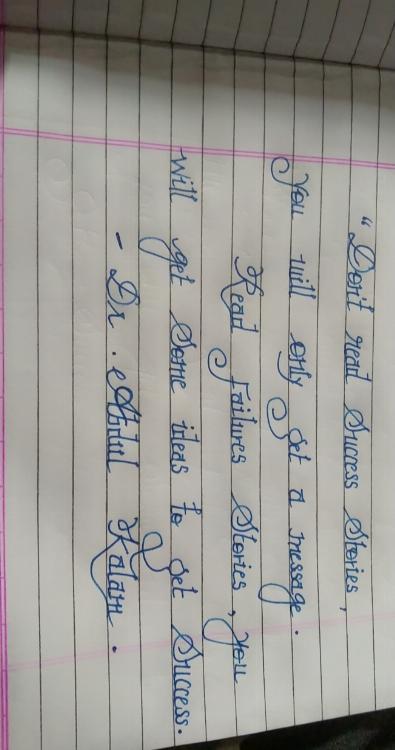 “ Don't read Success Stories,
You will only get a message.
Read failures Stories, you
will get some ideas to get Success.
- Dr. Abdul Kalam.